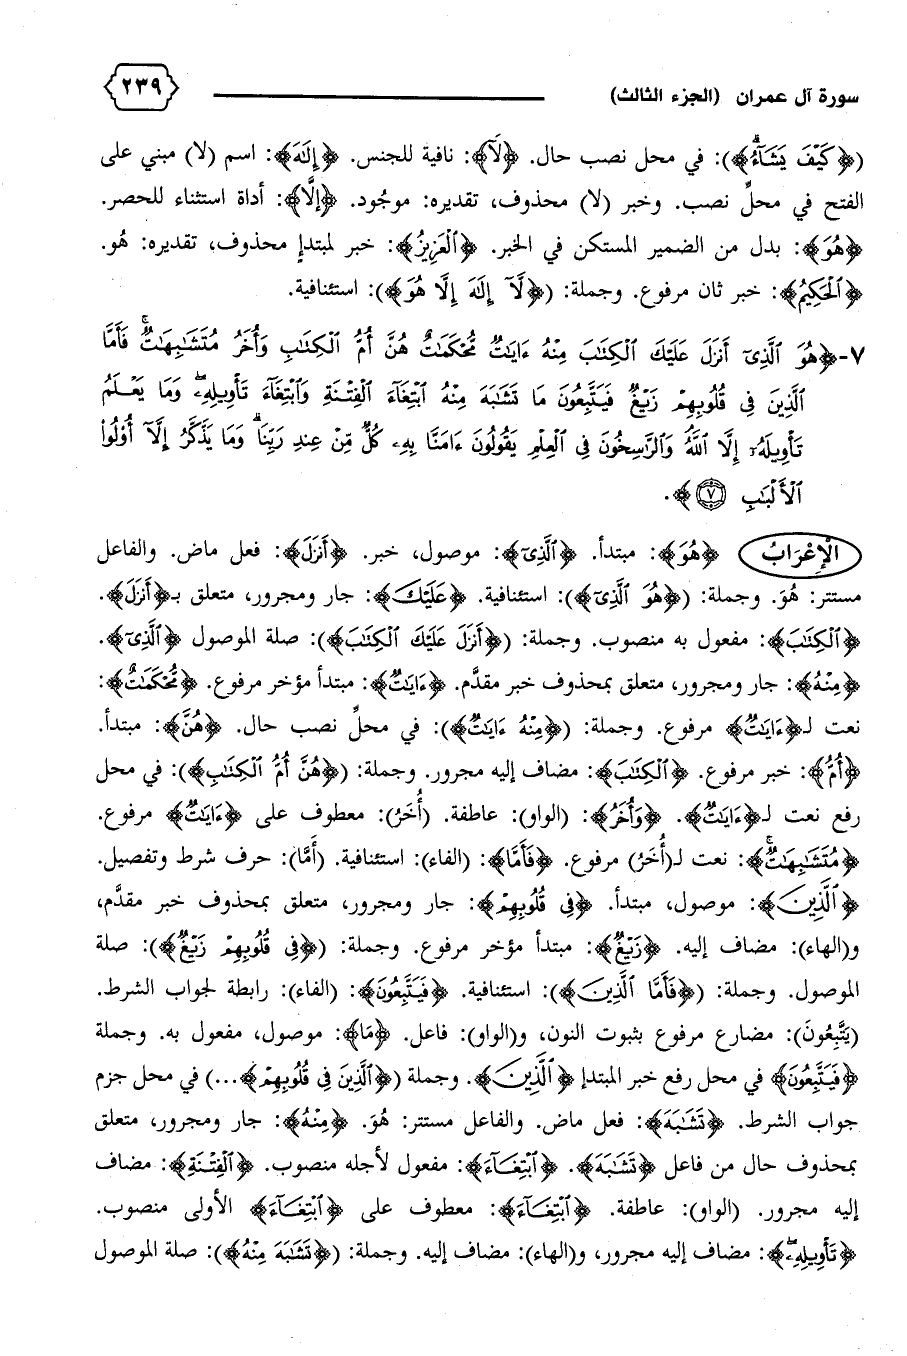 سورة آل عمران (الجزء الثالث) ٢٣٩
(﴿كَيْفَ يَشَآءُ﴾): في محل نصب حال. ﴿لَا﴾: نافية للجنس. ﴿إِلَهَ﴾: اسم (لا) مبني على
الفتح في محلِّ نصب. وخبر (لا) محذوف، تقديره: موجُود. ﴿إِلَّا﴾: أداة استثناء للحصر.
﴿هُوَ﴾: بدل من الضمير المستكن في الخبر. ﴿ٱلْعَزِيزُ﴾: خبر لمبتدإ محذوف، تقديره: هُو.
﴿ٱلْحَكِيمُ﴾: خبر ثان مرفوع. وجملة: (﴿لَآ إِلَهَ إِلَّا هُوَ﴾): استئنافية.
٧-﴿هُوَ ٱلَّذِىٓ أَنزَلَ عَلَيْكَ ٱلْكِتَٰبَ مِنْهُ ءَايَٰتٌ مُّحْكَمَٰتٌ هُنَّ أُمُّ ٱلْكِتَٰبِ وَأُخَرُ مُتَشَٰبِهَٰتٌ ۖ فَأَمَّا
ٱلَّذِينَ فِى قُلُوبِهِمْ زَيْغٌ فَيَتَّبِعُونَ مَا تَشَٰبَهَ مِنْهُ ٱبْتِغَآءَ ٱلْفِتْنَةِ وَٱبْتِغَآءَ تَأْوِيلِهِۦ ۖ وَمَا يَعْلَمُ
تَأْوِيلَهُۥٓ إِلَّا ٱللَّهُ ۗ وَٱلرَّٰسِخُونَ فِى ٱلْعِلْمِ يَقُولُونَ ءَامَنَّا بِهِۦ كُلٌّ مِّنْ عِندِ رَبِّنَا ۗ وَمَا يَذَّكَّرُ إِلَّآ أُو۟لُوا۟
ٱلْأَلْبَٰبِ ٧﴾.
الْإِعْرَابُ ﴿هُوَ﴾: مبتدأ. ﴿ٱلَّذِىٓ﴾: موصول، خبر. ﴿أَنزَلَ﴾: فعل ماض. والفاعل
مستتر: هُوَ. وجملة: (﴿هُوَ ٱلَّذِىٓ﴾): استئنافية. ﴿عَلَيْكَ﴾: جار ومجرور، متعلق بـ﴿أَنزَلَ﴾.
﴿ٱلْكِتَٰبَ﴾: مفعول به منصوب. وجملة: (﴿أَنزَلَ عَلَيْكَ ٱلْكِتَٰبَ﴾): صلة الموصول ﴿ٱلَّذِىٓ﴾.
﴿مِنْهُ﴾: جار ومجرور، متعلق بمحذوف خبر مقدَّم. ﴿ءَايَٰتٌ﴾: مبتدأ مؤخر مرفوع. ﴿مُّحْكَمَٰتٌ﴾:
نعت لـ﴿ءَايَٰتٌ﴾ مرفوع. وجملة: (﴿مِنْهُ ءَايَٰتٌ﴾): في محلِّ نصب حال. ﴿هُنَّ﴾: مبتدأ.
﴿أُمُّ﴾: خبر مرفوع. ﴿ٱلْكِتَٰبِ﴾: مضاف إليه مجرور. وجملة: (﴿هُنَّ أُمُّ ٱلْكِتَٰبِ﴾): في محل
رفع نعت لـ﴿ءَايَٰتٌ﴾. ﴿وَأُخَرُ﴾: (الواو): عاطفة. (أُخَرُ): معطوف على ﴿ءَايَٰتٌ﴾ مرفوع.
﴿مُتَشَٰبِهَٰتٌ﴾: نعت لـ(أُخَرُ) مرفوع. ﴿فَأَمَّا﴾: (الفاء): استئنافية. (أَمَّا): حرف شرط وتفصيل.
﴿ٱلَّذِينَ﴾: موصول، مبتدأ. ﴿فِى قُلُوبِهِمْ﴾: جار ومجرور، متعلق بمحذوف خبر مقدَّم،
و(الهاء): مضاف إليه. ﴿زَيْغٌ﴾: مبتدأ مؤخر مرفوع. وجملة: (﴿فِى قُلُوبِهِمْ زَيْغٌ﴾): صلة
الموصول. وجملة: (﴿فَأَمَّا ٱلَّذِينَ﴾): استئنافية. ﴿فَيَتَّبِعُونَ﴾: (الفاء): رابطة لجواب الشرط.
(يَتَّبِعُونَ): مضارع مرفوع بثبوت النون، و(الواو): فاعل. ﴿مَا﴾: موصول، مفعول به. وجملة
﴿فَيَتَّبِعُونَ﴾ في محل رفع خبر المبتدإ ﴿ٱلَّذِينَ﴾. وجملة (﴿ٱلَّذِينَ فِى قُلُوبِهِمْ﴾...) في محل جزم
جواب الشرط. ﴿تَشَٰبَهَ﴾: فعل ماض. والفاعل مستتر: هُوَ. ﴿مِنْهُ﴾: جار ومجرور، متعلق
بمحذوف حال من فاعل ﴿تَشَٰبَهَ﴾. ﴿ٱبْتِغَآءَ﴾: مفعول لأجله منصوب. ﴿ٱلْفِتْنَةِ﴾: مضاف
إليه مجرور. (الواو): عاطفة. ﴿ٱبْتِغَآءَ﴾: معطوف على ﴿ٱبْتِغَآءَ﴾ الأولى منصوب.
﴿تَأْوِيلِهِۦ﴾: مضاف إليه مجرور، و(الهاء): مضاف إليه. وجملة: (﴿تَشَٰبَهَ مِنْهُ﴾): صلة الموصول